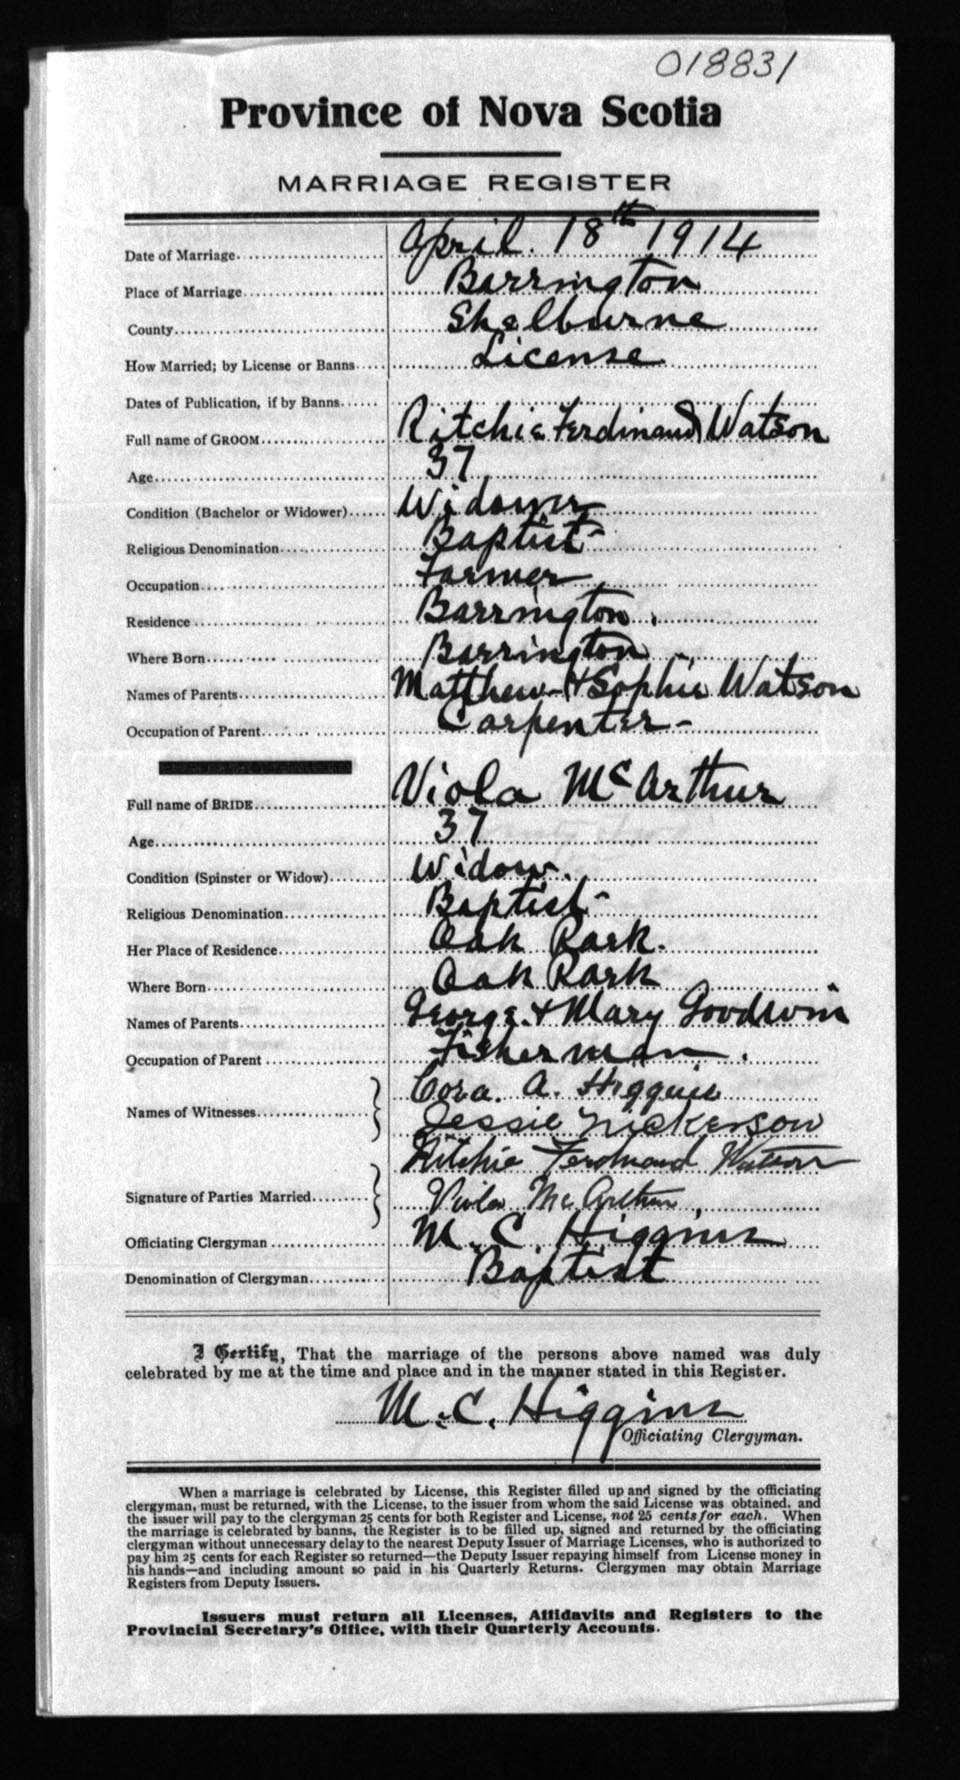 018831
Province of Nova Scotia
MARRIAGE REGISTER
Date of Marriage April 18th 1914
Place of Marriage Barrington
County Shelburne
How Married; by License or Banns License
Dates of Publication, if by Banns
Full name of GROOM Ritchie Ferdinand Watson
Age 37
Condition (Bachelor or Widower) Widower
Religious Denomination Baptist
Occupation Farmer
Residence Barrington
Where Born Barrington
Names of Parents Matthew & Sophie Watson
Occupation of Parent Carpenter
Full name of BRIDE Viola McArthur
Age 37
Condition (Spinster or Widow) Widow.
Religious Denomination Baptist
Her Place of Residence Oak Park.
Where Born Oak Park
Names of Parents George & Mary Goodwin
Occupation of Parent Fisherman.
Names of Witnesses Cora. A. Higgins
Jessie Nickerson
Signature of Parties Married Ritchie Ferdinand Watson
Viola McArthur
Officiating Clergyman M. C. Higgins
Denomination of Clergyman Baptist
I Certify, That the marriage of the persons above named was duly
celebrated by me at the time and place and in the manner stated in this Register.
M. C. Higgins
Officiating Clergyman.
When a marriage is celebrated by License, this Register filled up and signed by the officiating
clergyman, must be returned, with the License, to the issuer from whom the said License was obtained, and
the issuer will pay to the clergyman 25 cents for both Register and License, not 25 cents for each. When
the marriage is celebrated by banns, the Register is to be filled up, signed and returned by the officiating
clergyman without unnecessary delay to the nearest Deputy Issuer of Marriage Licenses, who is authorized to
pay him 25 cents for each Register so returned—the Deputy Issuer repaying himself from License money in
his hands—and including amount so paid in his Quarterly Returns. Clergymen may obtain Marriage
Registers from Deputy Issuers.
Issuers must return all Licenses, Affidavits and Registers to the
Provincial Secretary's Office, with their Quarterly Accounts.